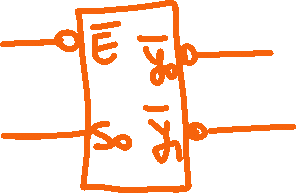 E̅ y̅₀
s₀ y̅₁